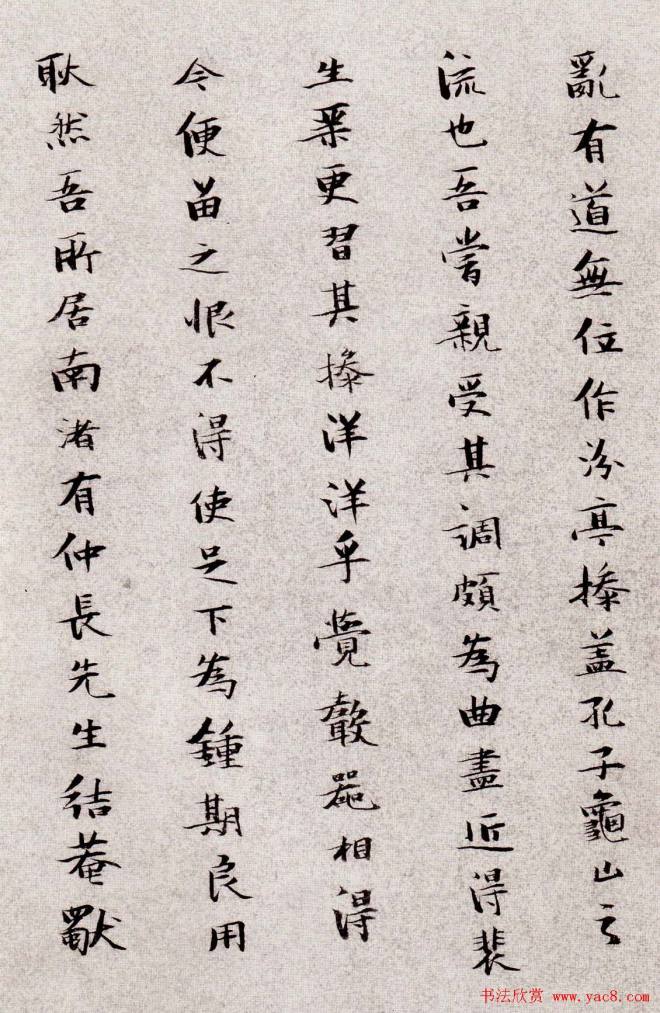 亂有道無位作汾亭操盖孔子龜山之
流也吾嘗親受其調頗為曲盡近得裴
生栗更習其操洋洋乎覺聲器相得
今便留之恨不得使足下為鍾期良用
耿然吾所居南渚有仲長先生結菴獨
书法欣赏 www.yac8.com